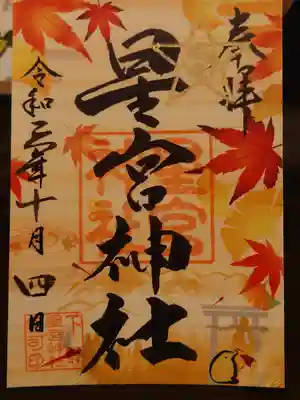 奉拝
星宮神社
星宮
神社
令和二年十月四日